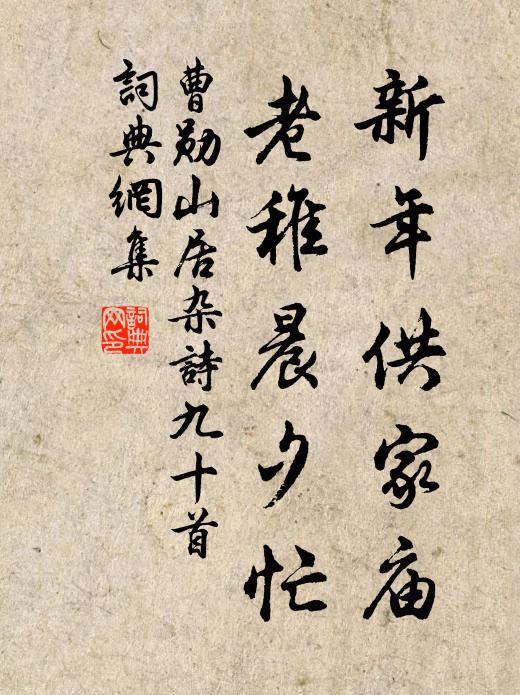 新年供家庙
老稚晨夕忙
曹勋山居杂詩九十首
詞典網集
詞典网印